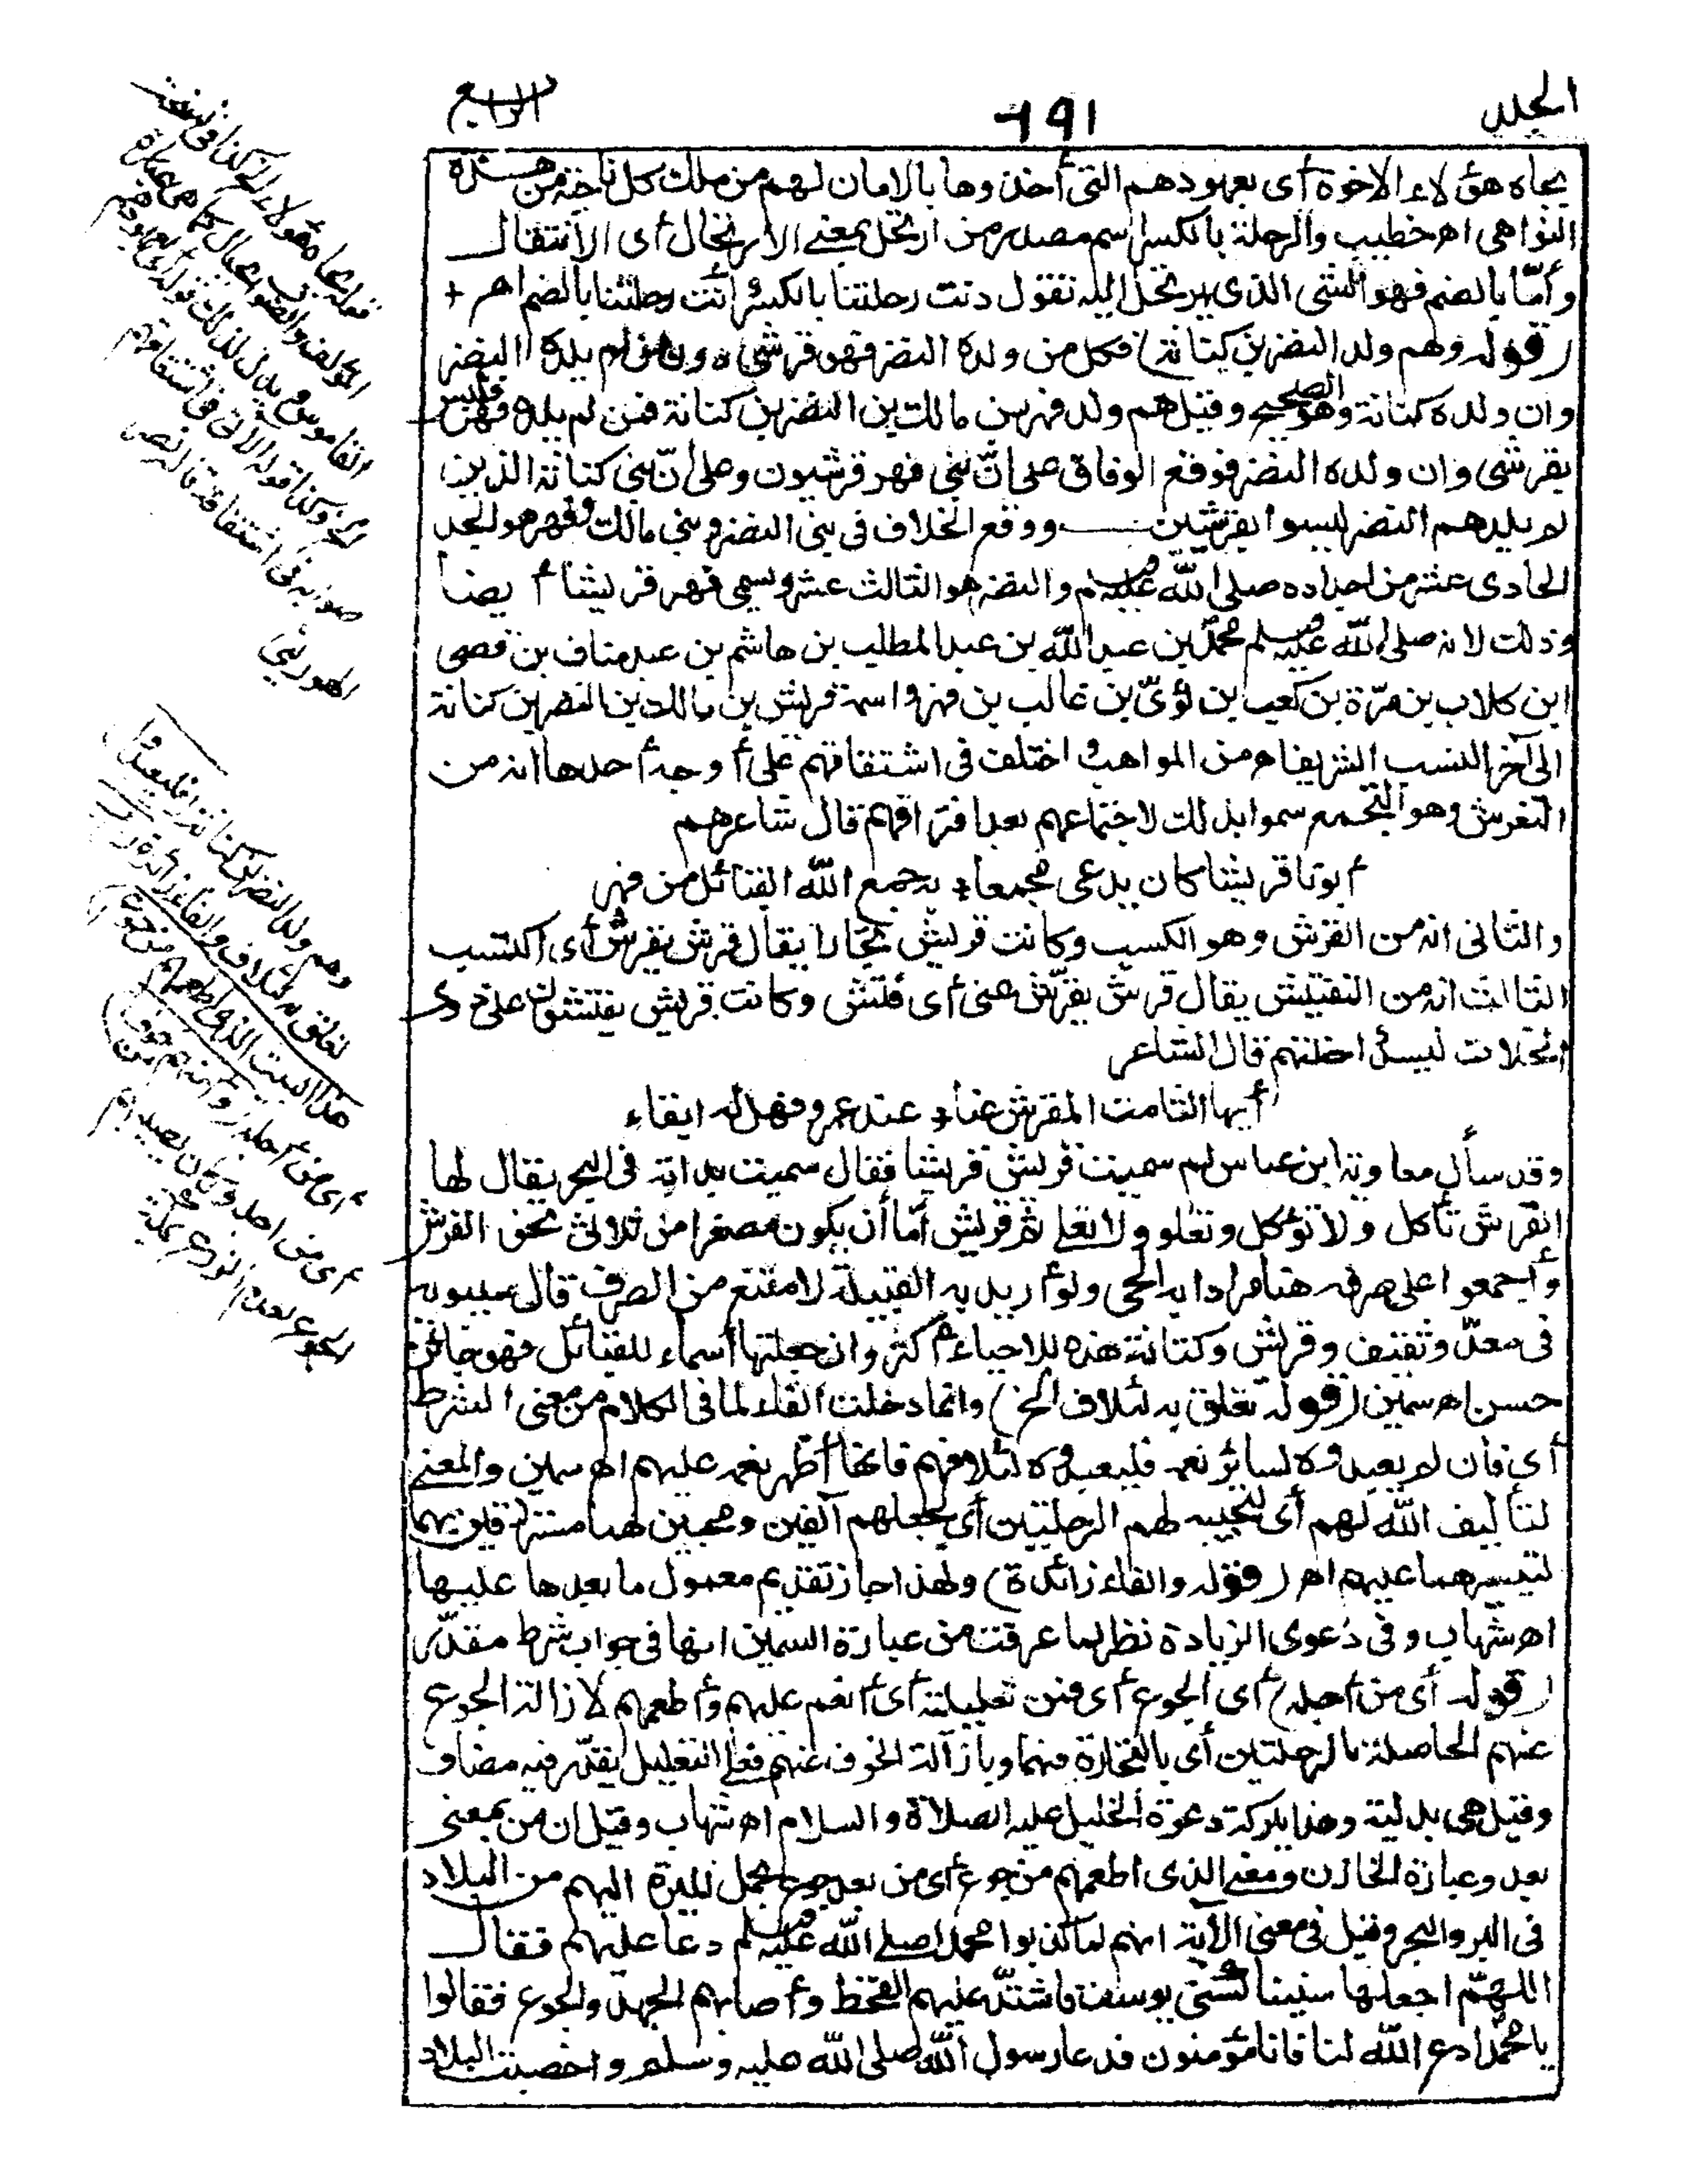 الجلد
٦٩١
الرابع
بجاه هؤلاء الاخوة أى بعهودهم التى أخذوها بالامان لهم من ملك كل ناحية من هذه
النواحى اهـ خطيب والرحلة بالكسر اسم مصدر من ارتحل بمعنى الارتحال أى الانتقال
وأمّا بالضم فهو الشى الذى يرتحل اليه تقول دنت رحلتنا بالكسر أنت رحلتنا بالضم اهـ +
(قوله وهم ولد النضر بن كنانة) فكل من ولده النضر فهو قرشى دون من لم يلده النضر
وان ولده كنانة وهو الصحيح وقيل هم ولد فهر بن مالك بن النضر بن كنانة فمن لم يلده فهر فليس
بقرشى وان ولده النضر فوقع الوفاق على انّ بنى فهر قرشيون وعلى انّ بنى كنانة الذين
لم يلدهم النضر ليسوا بقرشين ووقع الخلاف فى بنى النضر وبنى مالك وفهر هو الجد
الحادى عشر من اجداده صلى الله عليه وسلم والنضر هو الثالث عشر ويسمى فهر قريشا أيضا
وذلك لانه صلى الله عليه وسلم محمد بن عبد الله بن عبد المطلب بن هاشم بن عبد مناف بن قصى
ابن كلاب بن مرّة بن كعب بن لؤىّ بن غالب بن فهر واسمه قريش بن مالك بن النضر بن كنانة
الى آخر النسب الشريف اهـ من المواهب واختلف فى اشتقاقهم على أوجه أحدها انه من
التقرش وهو التجمع سموا بذلك لاجتماعهم بعد افتراقهم قال شاعرهم
أبونا قريشا كان يدعى مجمعا + به جمع الله القبائل من فهر
والثانى انه من القرش وهو الكسب وكانت قريش تجارا يقال قرش يقرش أى اكتسب
الثالث انه من التفتيش يقال قرش يقرّش عنى أى فتش وكانت قريش يفتشون على ذوى
الخلات ليسدّ اخلتهم قال الشاعر
أيها الشامت المقرش عنا + عند عمرو فهل له ابقاء
وقد سأل معاوية ابن عباس لم سميت قريش قريشا فقال سميت بدابة فى البحر يقال لها
القرش تأكل ولا تؤكل وتعلو ولا تعلى ثم قريش أمّا أن يكون مصغرا من ثلاثى نحو القرش
وأجمعوا على صرفه هنا مرادا به الحى ولو أريد به القبيلة لامتنع من الصرف قال سيبويه
فى معدّ وثقيف وقريش وكنانة هذه للاحياء أكثر وان جعلتها أسماء للقبائل فهو جائز
حسن اهـ سمين (قوله تعلق به لئلاف الخ) وانما دخلت الفاء لما فى الكلام من معنى الشرط
أى فان لم يعبدوه لسائر نعمه فليعبدوه لئلافهم فانها أظهر نعمه عليهم اهـ سمين والمعنى
لتأليف الله لهم أى لتحبيبه لهم الرحلتين أى لجعلهم آلفين ومحبين لهما مسترزقين بهما
لتيسيرهما عليهم اهـ (قوله والفاء زائدة) ولهذا جاز تقديم معمول ما بعدها عليها
اهـ شهاب وفى دعوى الزيادة نظر لما عرفت من عبارة السمين انها فى جواب شرط مقدّر
(قوله أى من أجله) أى الجوع أى فمن تعليلية أى أنعم عليهم وأطعمهم لازالة الجوع
عنهم الحاصلة بالرحلتين أى بالتجارة فيهما وبازالة الخوف عنهم فعلى التعليل يقدّر فيه مضاف
وقيل هى بدلية وهذا ببركة دعوة الخليل عليه الصلاة والسلام اهـ شهاب وقيل ان من بمعنى
بعد وعبارة الخازن ومعنى الذى اطعمهم من جوع أى من بعد جوع بحمل الميرة اليهم من البلاد
فى البر والبحر وقيل فى معنى الآية انهم لما كذبوا محمدا صلى الله عليه وسلم دعا عليهم فقال
اللهمّ اجعلها سنينا كسنى يوسف فاشتدّ عليهم القحط وأصابهم الجهد والجوع فقالوا
يا محمد ادع الله لنا فانا مؤمنون فدعا رسول الله صلى الله عليه وسلم واخصبت البلاد
قوله بجاه هؤلاء الخ كذا فى نسخة
المؤلف والصواب بحبال كما هى عبارة
القاموس
وكذا قوله الآتى فى اشتقاقهم
صوابه فى اشتقاقه
الهورينى
وهم ولد النضر بن كنانة (فليعبدوا)
تعلق به لئلاف والفاء زائدة (رب
هذا البيت الذى أطعمهم من جوع)
أى من أجله (وآمنهم من خوف)
أى من اجله وكان يصيبهم
الجوع لعدم الزرع بمكة